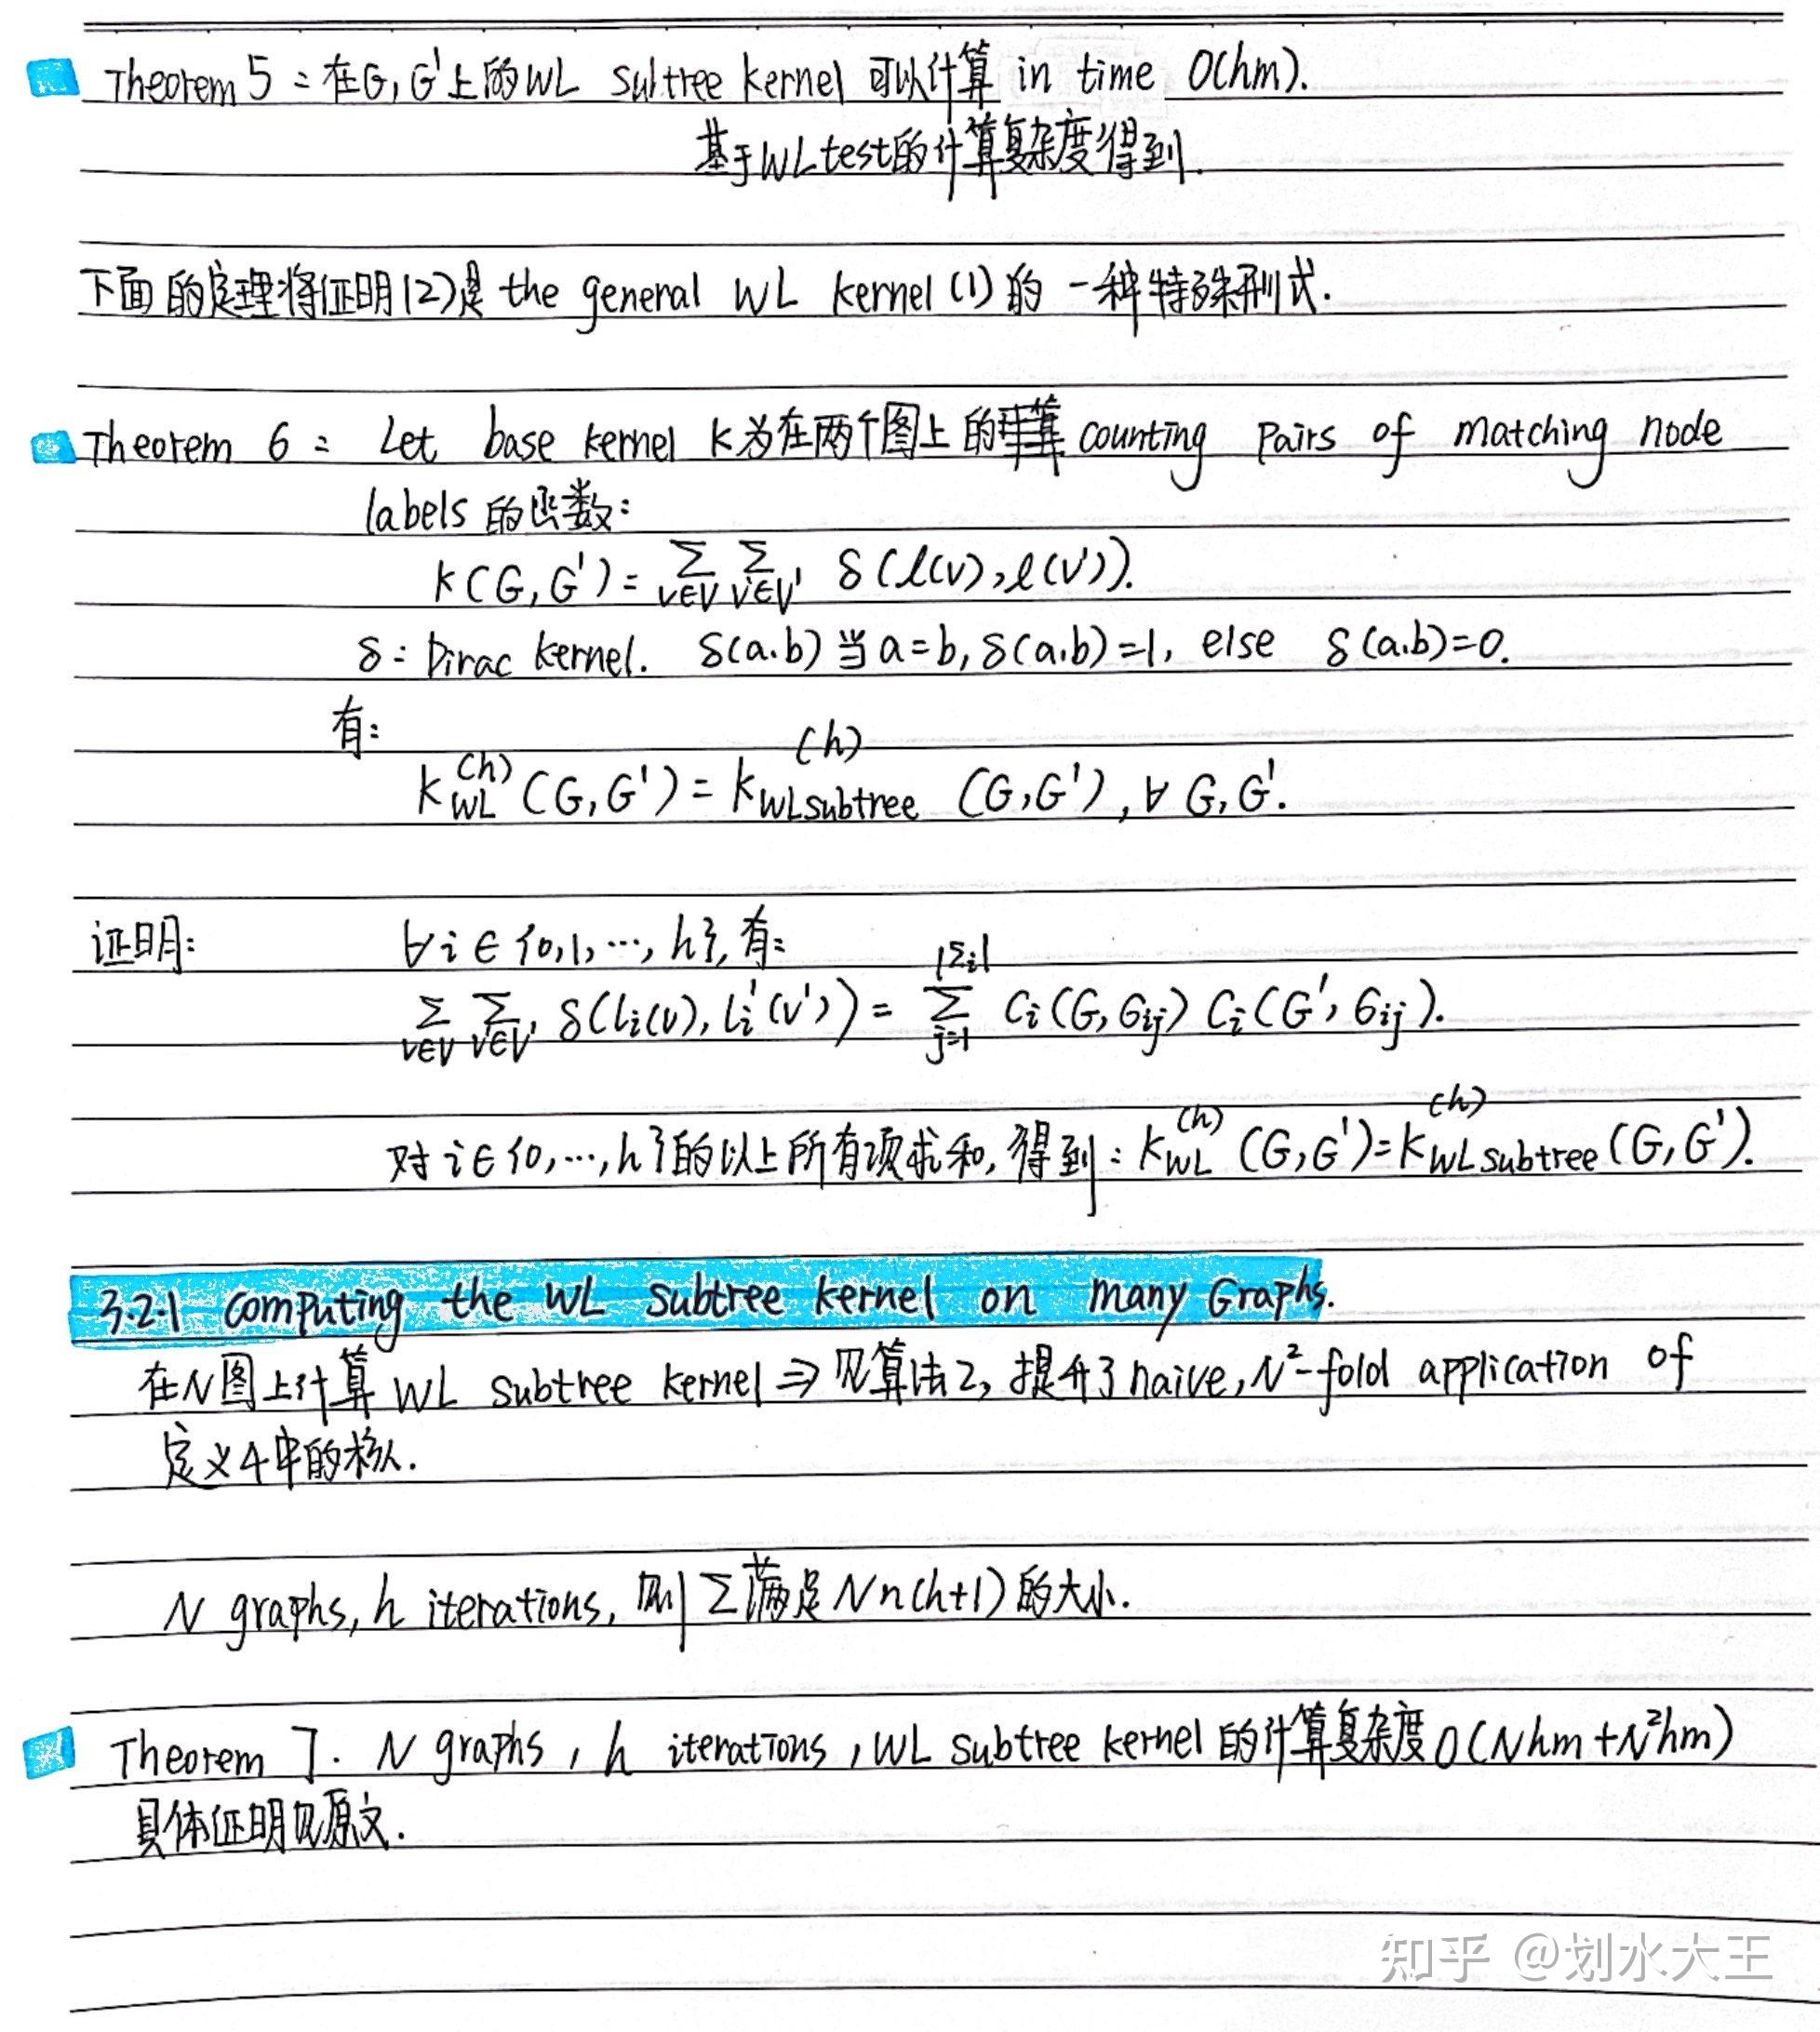 Theorem 5：在G,G'上的WL subtree kernel 可以计算 in time O(hm).
基于WL test的计算复杂度得到.
下面的定理将证明(2)是 the general WL kernel (1) 的一种特殊形式.
Theorem 6： Let base kernel k为在两个图上的 counting pairs of matching node
labels 的函数：
k(G,G')=∑_{v∈V} ∑_{v'∈V'} δ(ℓ(v),ℓ(v')).
δ：Dirac kernel. δ(a.b) 当 a=b, δ(a.b)=1, else δ(a.b)=0.
有：
k_{WL}^{(h)}(G,G')=k_{WLsubtree}^{(h)}(G,G'), ∀ G,G'.
证明： ∀i∈{0,1,…,h},有：
∑_{v∈V} ∑_{v'∈V'} δ(l_i(v),l_i'(v'))=∑_{j=1}^{|Σ_i|} C_i(G,σ_{ij}) C_i(G',σ_{ij}).
对 i∈{0,…,h}的以上所有项求和,得到：k_{WL}^{(h)}(G,G')=k_{WLsubtree}^{(h)}(G,G').
3.2.1 Computing the WL subtree kernel on many Graphs.
在N图上计算 WL subtree kernel ⇒ 见算法2, 提升了naive, N²-fold application of
定义4中的核.
N graphs, h iterations, 则 Σ满足 Nn(h+1) 的大小.
Theorem 7. N graphs, h iterations, WL subtree kernel 的计算复杂度 O(Nhm+N²hm)
具体证明见原文.
知乎 @划水大王